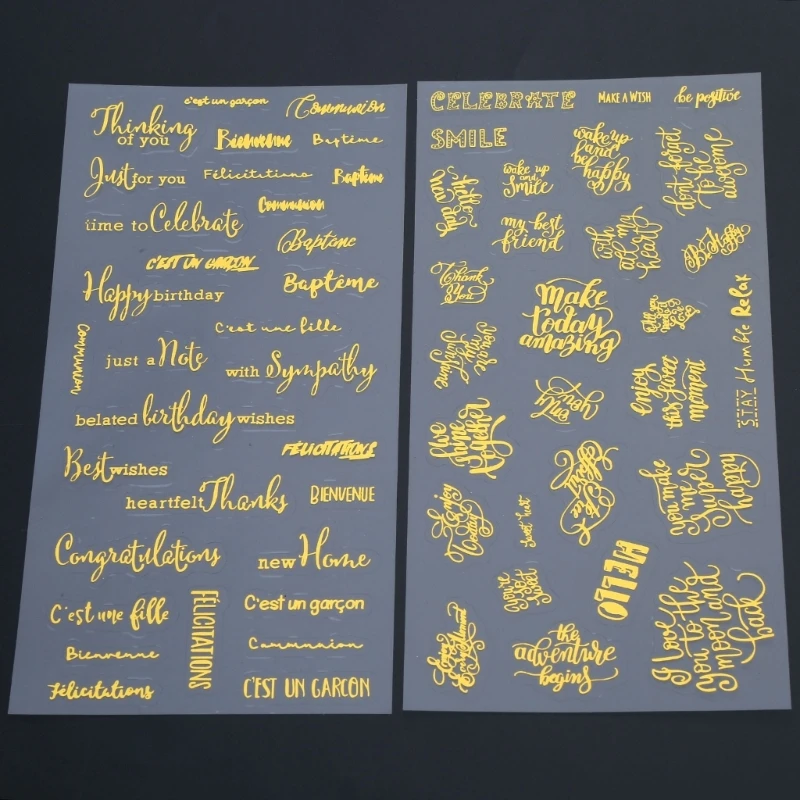 c'est un garçon
Communion
Thinking
of you
Bienvenue
Baptême
Just for you
Félicitations
Baptême
Communion
time to Celebrate
Baptême
C'EST UN GARÇON
Happy birthday
Baptême
C'est une fille
COMMUNION
just a Note
with Sympathy
belated birthday wishes
FÉLICITATIONS
Best wishes
heartfelt Thanks
BIENVENUE
Congratulations
new Home
C'est une fille
FÉLICITATIONS
C'est un garçon
Bienvenue
Communion
Félicitations
C'EST UN GARCON
CELEBRATE
MAKE A WISH
be positive
SMILE
wake up
and
be
happy
don't forget
to be
awesome
wake up
and
Smile
my best
friend
with
all my
heart
Be Happy
Thank
you
make
today
amazing
you are
my
Sunshine
enjoy
this sweet
moment
STAY Humble Relax
thank
you
live
shine
together
Enjoy
Today
sweet heart
you make
me
super
happy
HELLO
you're
so
sweet
the
adventure
begins
I love
you to the
moon and
back